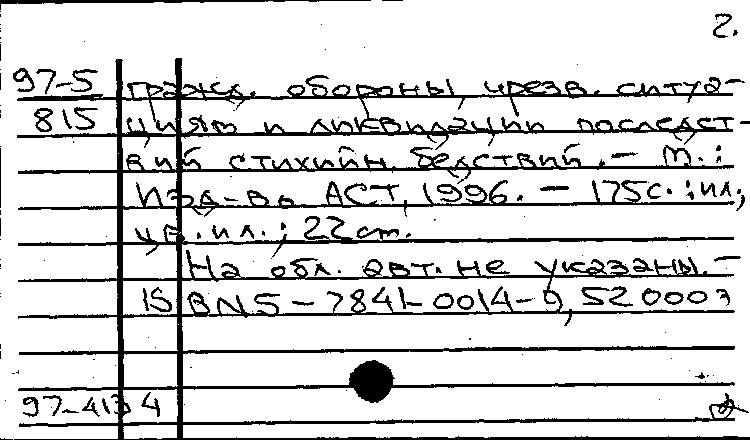 2.
97-5 гражд. обороны, чрезв. ситуа-
815 циям и ликвидации последст-
вий стихийн. бедствий. – М.:
Изд-во АСТ, 1996. – 175с.: ил.,
цв. ил.; 22см.
На обл. авт. не указаны. –
ISBN 5-7841-0014-9, 52000э
97-4134